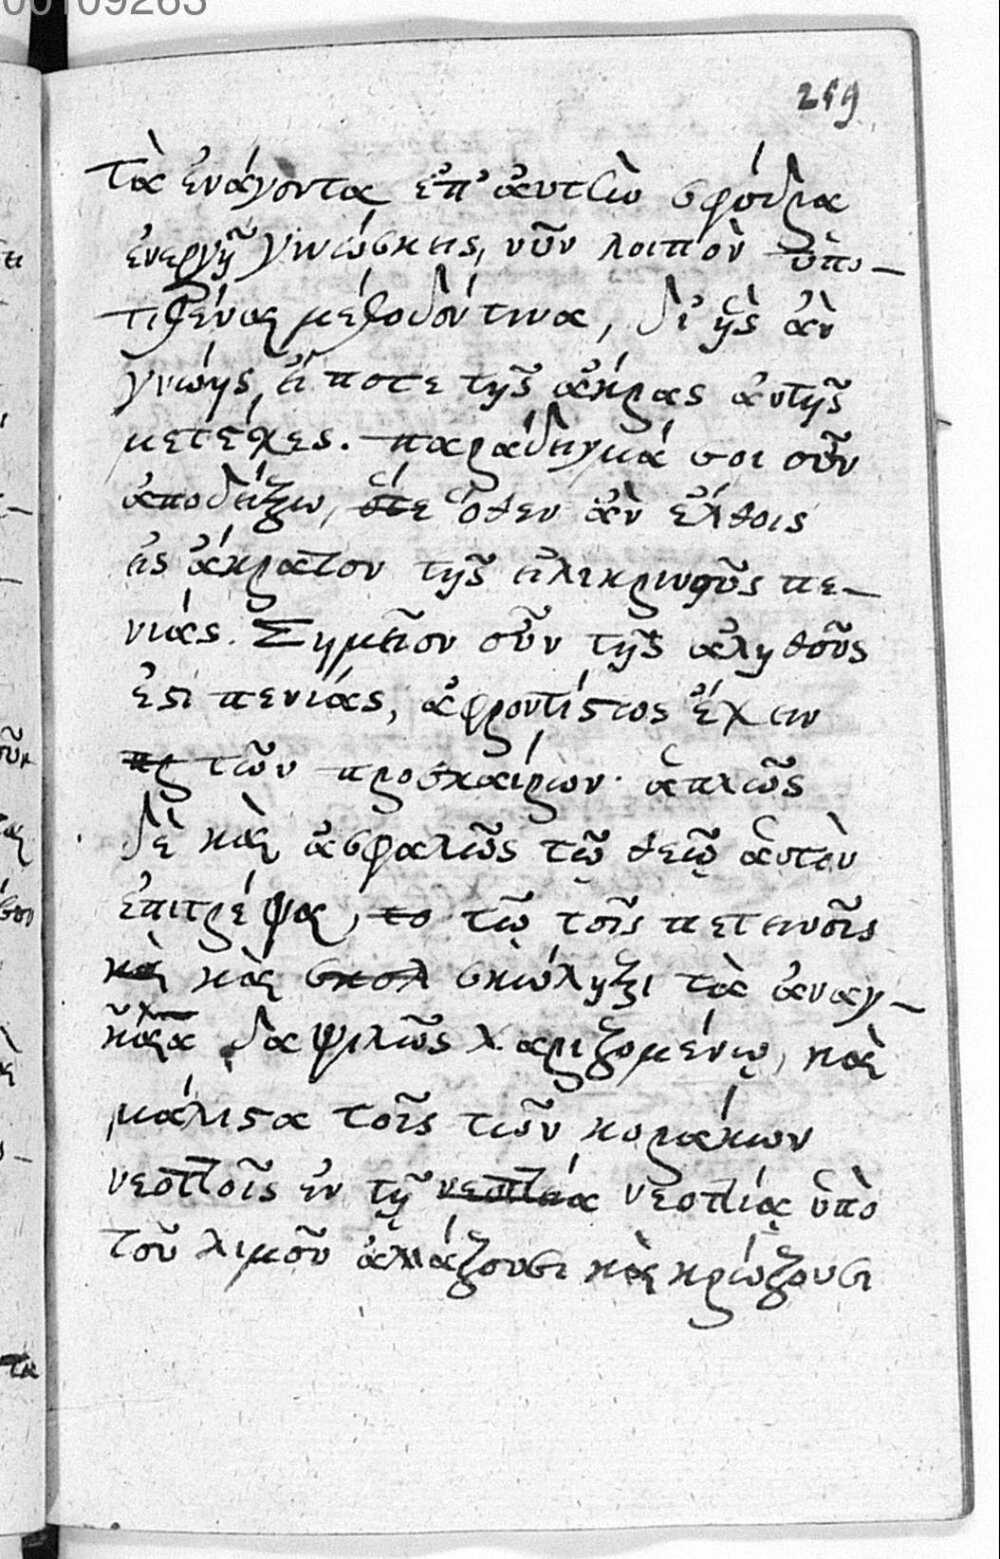 00109263
259
τὰ ἐνάγοντα ἐπ' ἀυτὼ σφόδρα
ἐνεργῆ γινώσκῃς, νῦν λοιπὸν ὑπο-
τιθέναι μέθοδόν τινα, δι' ἧς ἂν
γνώῃς, εἴ ποτε τῆς ἄκρας ἀυτῆς
μετέχες. παράδειγμά σοι οὖν
ἀποδείξω, ὅτε ὅθεν ἂν ἔλθοις
εἰς ἄκρατον τῆς εἰλικρινοῦς πε-
νίας. Σημεῖον οὖν τῆς ἀληθοῦς
ἐστι πενίας, ἀφροντίστως ἔχειν
πρ τῶν προσκαίρων· ἁπλῶς
δὲ καὶ ἀσφαλῶς τῷ θεῷ ἁυτὸν
ἐπιτρέψαι, το τῷ τοῖς πετεινοῖς
καὶ καὶ σκολ σκώληξι τὰ ἀναγ-
καῖα δαψιλῶς χαριζομένῳ, καὶ
μάλιστα τοῖς τῶν κοράκων
νεοττοῖς ἐν τῇ νεοττιά νεοττίᾳ ὑπὸ
τοῦ λιμοῦ ἀλλάζουσι καὶ κρώζουσι